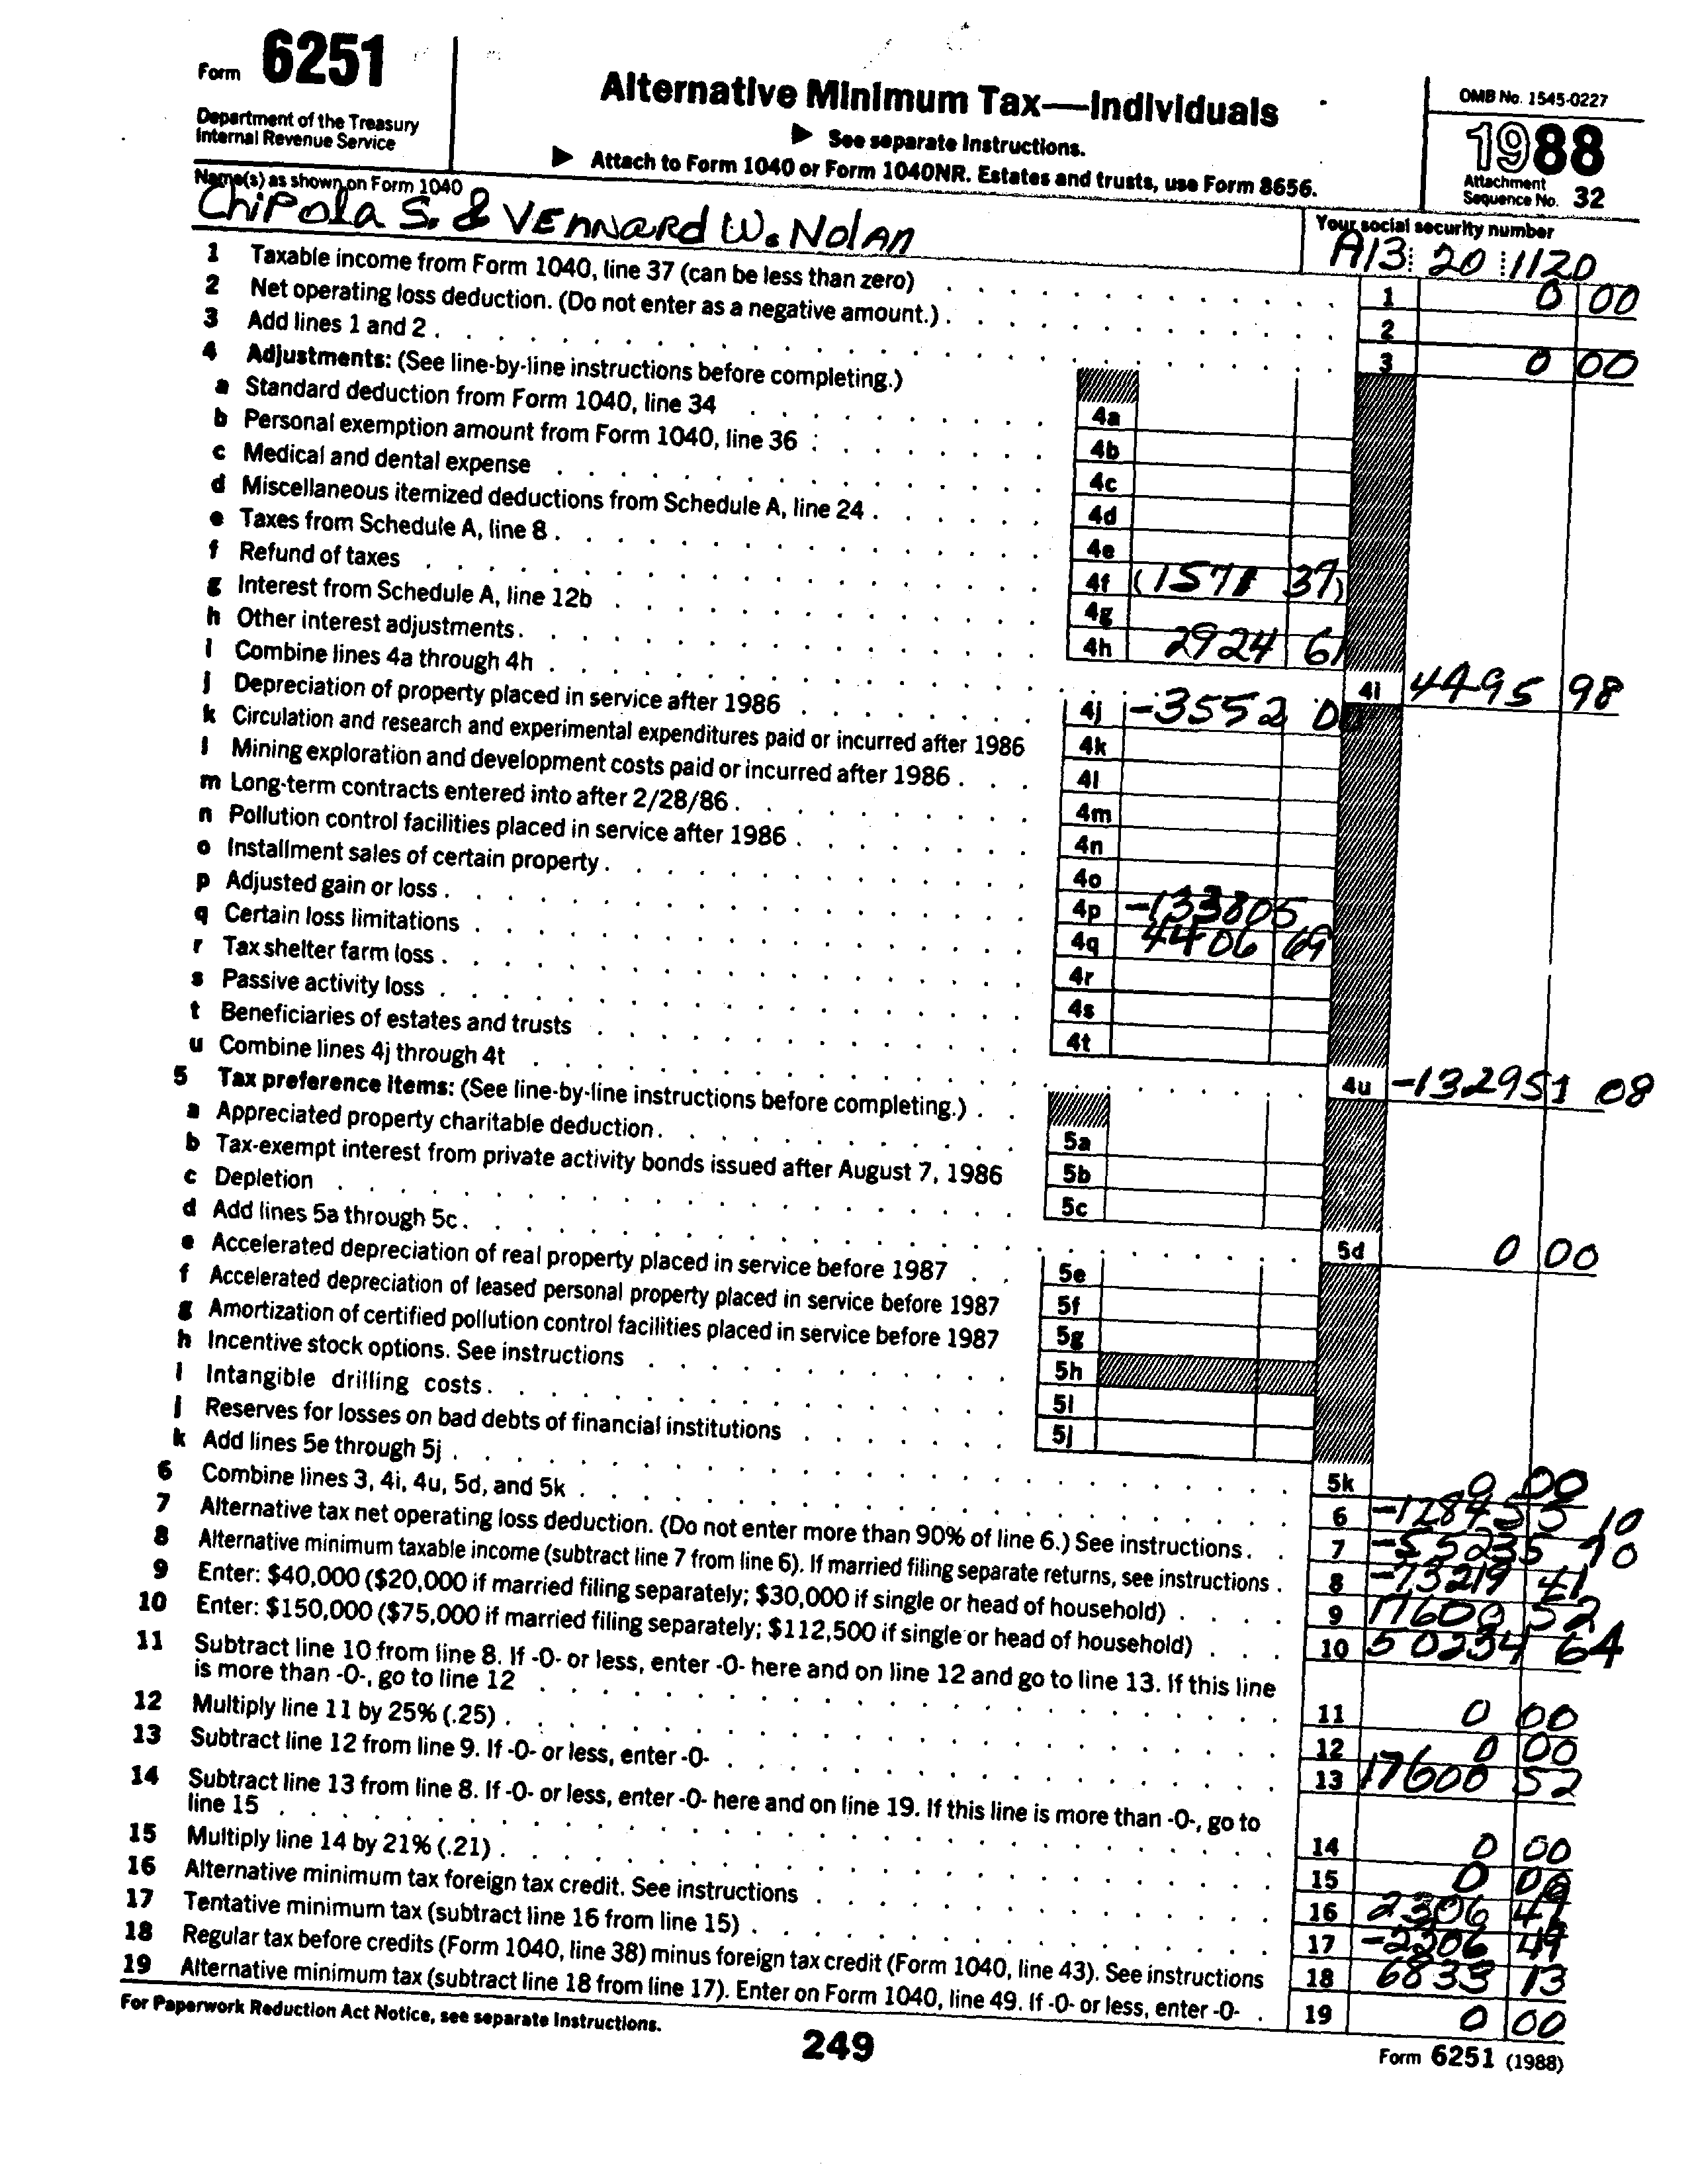 Form 6251
Department of the Treasury
Internal Revenue Service
Alternative Minimum Tax—Individuals
▶ See separate Instructions.
▶ Attach to Form 1040 or Form 1040NR. Estates and trusts, use Form 8656.
OMB No. 1545-0227
1988
Attachment
Sequence No. 32
Name(s) as shown on Form 1040
Chipola S. & VENNARD W. NolAn
Your social security number
A13 20 1120
1 Taxable income from Form 1040, line 37 (can be less than zero) 1 0 00
2 Net operating loss deduction. (Do not enter as a negative amount.) 2
3 Add lines 1 and 2 3 0 00
4 Adjustments: (See line-by-line instructions before completing.)
a Standard deduction from Form 1040, line 34 4a
b Personal exemption amount from Form 1040, line 36 4b
c Medical and dental expense 4c
d Miscellaneous itemized deductions from Schedule A, line 24 4d
e Taxes from Schedule A, line 8 4e
f Refund of taxes 4f (1571 37)
g Interest from Schedule A, line 12b 4g
h Other interest adjustments 4h 2924 61
i Combine lines 4a through 4h 4i 4495 98
j Depreciation of property placed in service after 1986 4j -3552 00
k Circulation and research and experimental expenditures paid or incurred after 1986 4k
l Mining exploration and development costs paid or incurred after 1986 4l
m Long-term contracts entered into after 2/28/86 4m
n Pollution control facilities placed in service after 1986 4n
o Installment sales of certain property 4o
p Adjusted gain or loss 4p -133805
q Certain loss limitations 4q 4406 69
r Tax shelter farm loss 4r
s Passive activity loss 4s
t Beneficiaries of estates and trusts 4t
u Combine lines 4j through 4t 4u -132951 08
5 Tax preference items: (See line-by-line instructions before completing.)
a Appreciated property charitable deduction 5a
b Tax-exempt interest from private activity bonds issued after August 7, 1986 5b
c Depletion 5c
d Add lines 5a through 5c 5d 0 00
e Accelerated depreciation of real property placed in service before 1987 5e
f Accelerated depreciation of leased personal property placed in service before 1987 5f
g Amortization of certified pollution control facilities placed in service before 1987 5g
h Incentive stock options. See instructions 5h
i Intangible drilling costs 5i
j Reserves for losses on bad debts of financial institutions 5j
k Add lines 5e through 5j 5k 0 00
6 Combine lines 3, 4i, 4u, 5d, and 5k 6 -128455 10
7 Alternative tax net operating loss deduction. (Do not enter more than 90% of line 6.) See instructions 7 -55235
8 Alternative minimum taxable income (subtract line 7 from line 6). If married filing separate returns, see instructions 8 -73219 41
9 Enter: $40,000 ($20,000 if married filing separately; $30,000 if single or head of household) 9 17600 52
10 Enter: $150,000 ($75,000 if married filing separately; $112,500 if single or head of household) 10 50234 64
11 Subtract line 10 from line 8. If -0- or less, enter -0- here and on line 12 and go to line 13. If this line
is more than -0-, go to line 12 11 0 00
12 Multiply line 11 by 25% (.25) 12 0 00
13 Subtract line 12 from line 9. If -0- or less, enter -0- 13 17600 52
14 Subtract line 13 from line 8. If -0- or less, enter -0- here and on line 19. If this line is more than -0-, go to
line 15 14 0 00
15 Multiply line 14 by 21% (.21) 15 0 00
16 Alternative minimum tax foreign tax credit. See instructions 16 2306 49
17 Tentative minimum tax (subtract line 16 from line 15) 17 -2306 49
18 Regular tax before credits (Form 1040, line 38) minus foreign tax credit (Form 1040, line 43). See instructions 18 6833 13
19 Alternative minimum tax (subtract line 18 from line 17). Enter on Form 1040, line 49. If -0- or less, enter -0- 19 0 00
For Paperwork Reduction Act Notice, see separate Instructions.
249
Form 6251 (1988)